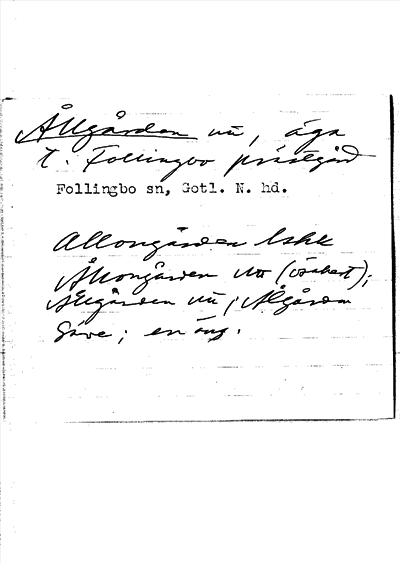 Ållgården nu, äga
t. Follingbo prästgård
Follingbo sn, Gotl. N. hd.
Allongården
Ållongården (osäkert);
Ållgården nu, Ålgården
Säve; en äng.